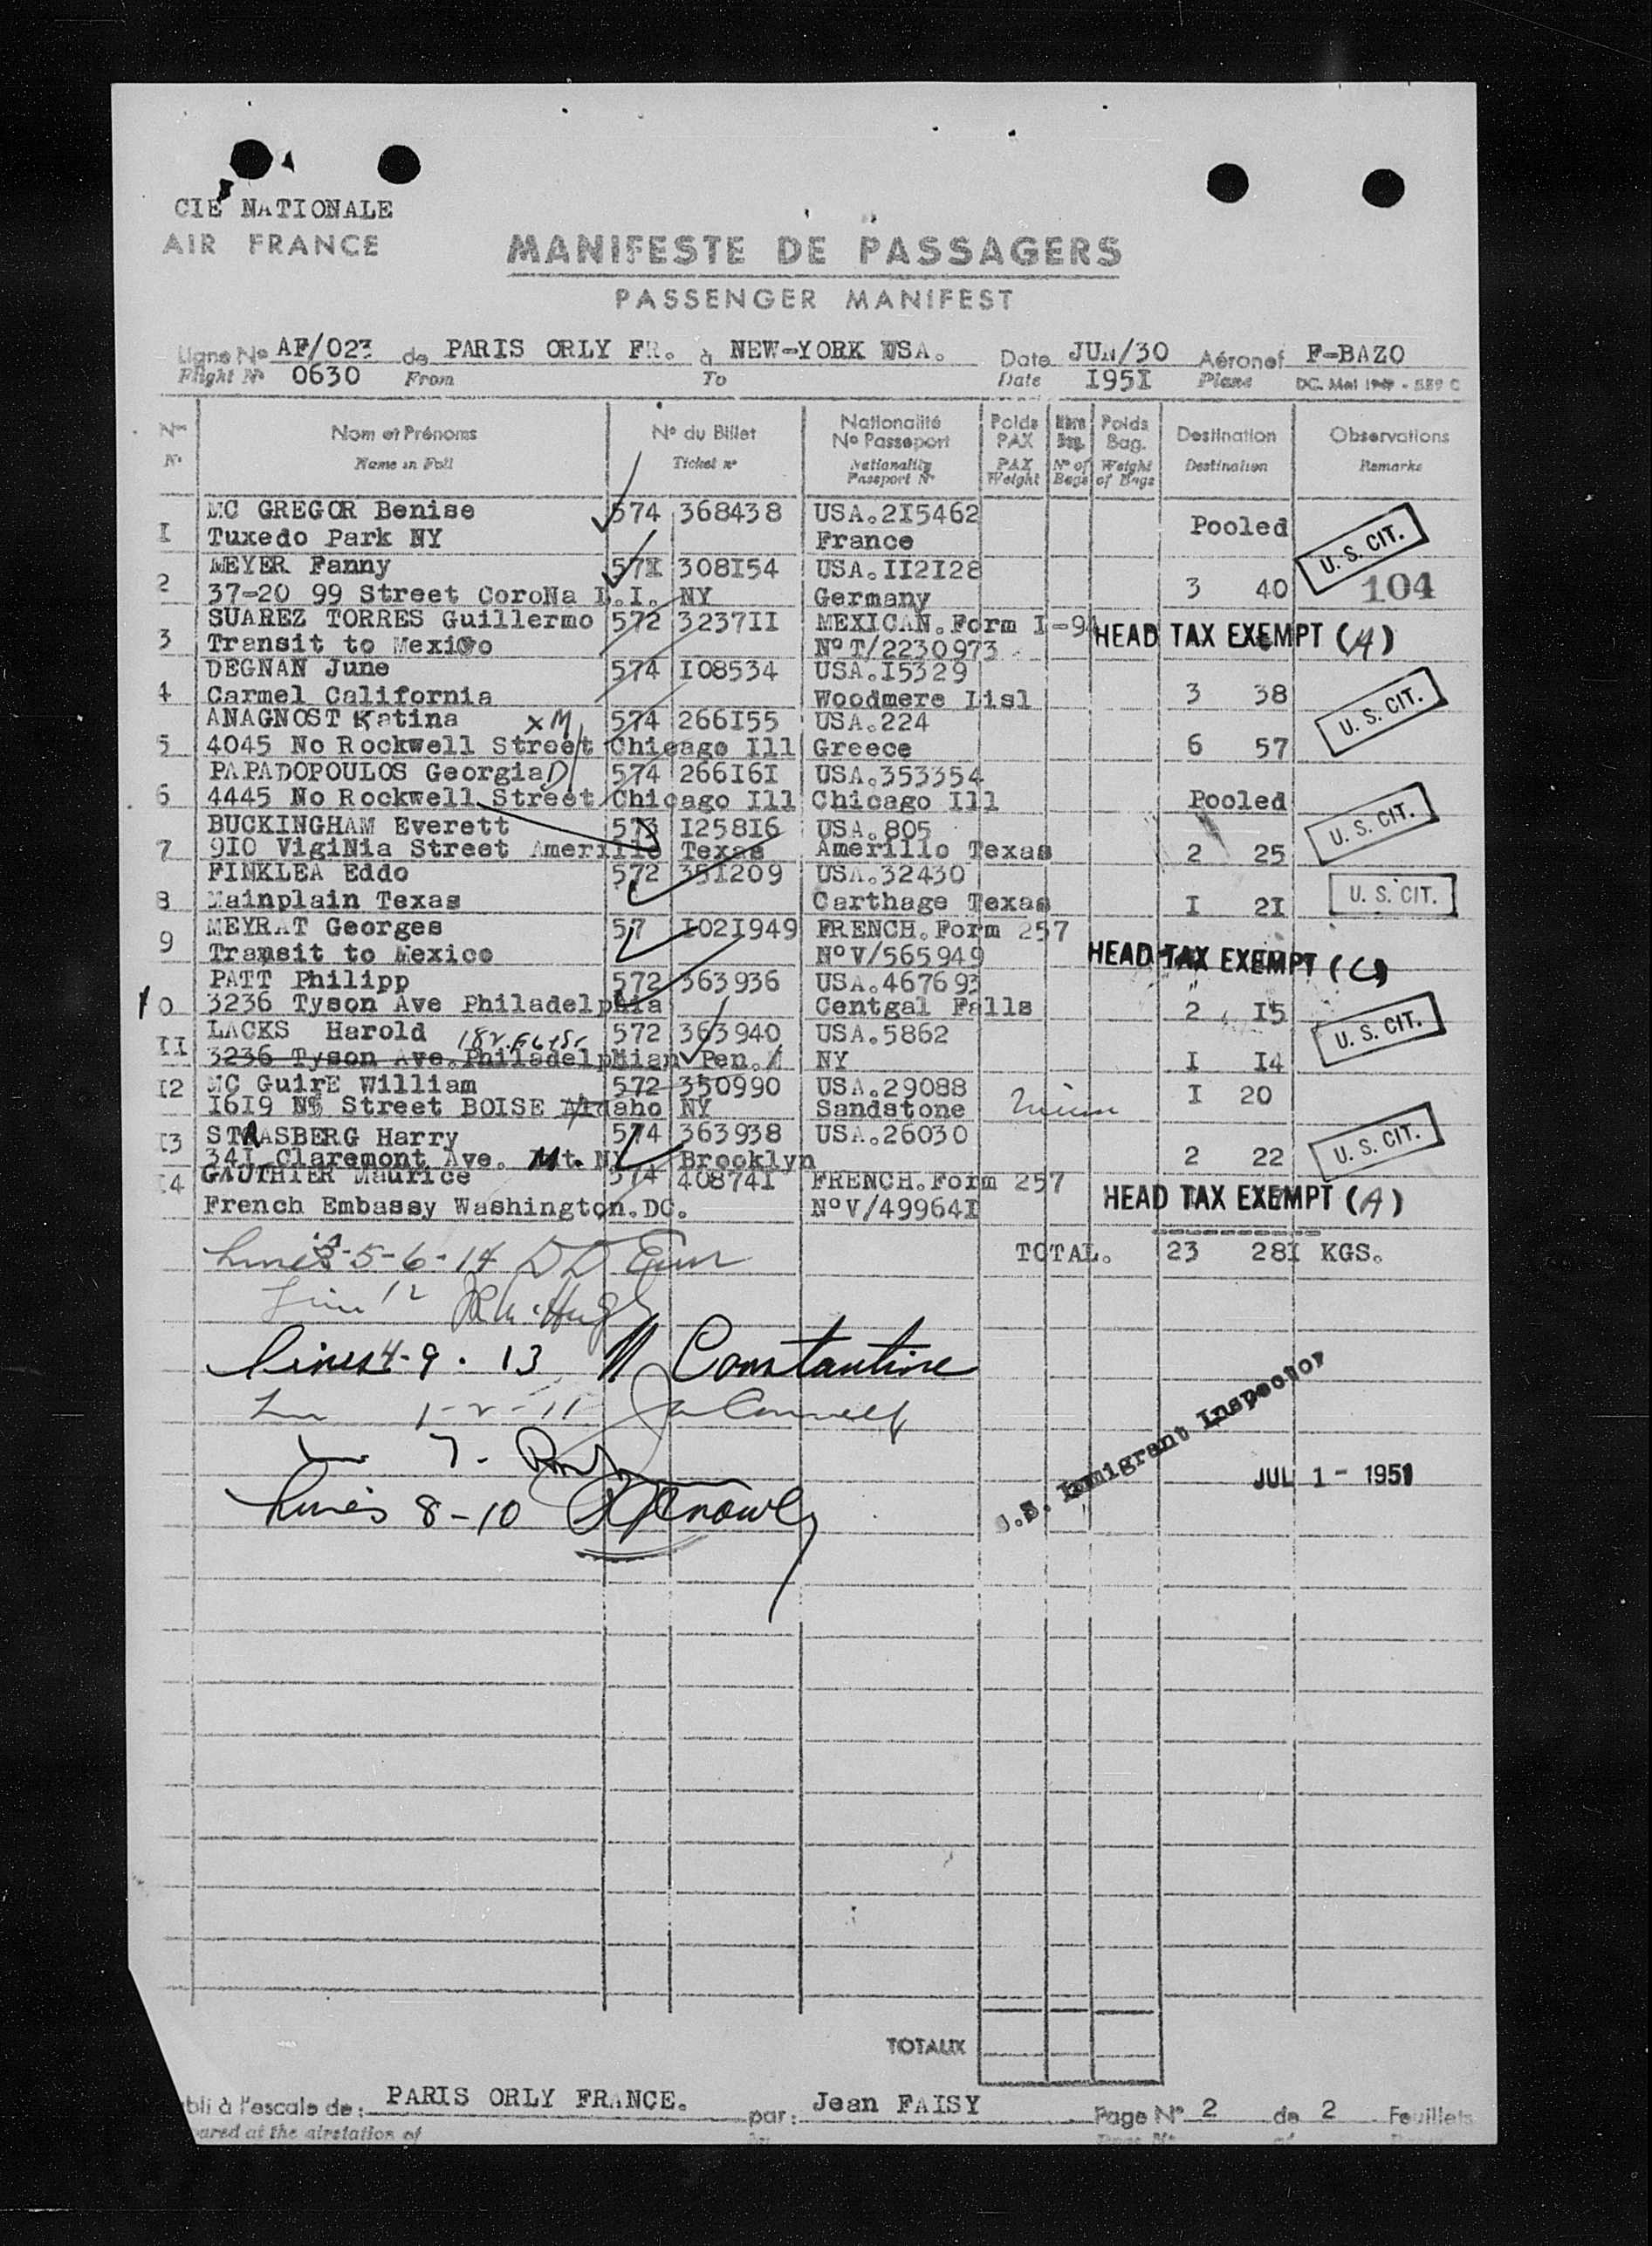 CIE NATIONALE
AIR FRANCE
MANIFESTE DE PASSAGERS
PASSENGER MANIFEST
Ligne No AF/023 de PARIS ORLY FR. à NEW-YORK USA. Date JUN/30 Aéronef F-BAZO
Flight No 0630 From To Date I95I Plane
Nos Nom et Prénoms No du Billet Nationalité No Passeport Poids PAX Nbre Bag. Poids Bag. Destination Observations
N. Name in Full Ticket no Nationality Passport No PAX Weight No of Bags Weight of Bags Destination Remarks
I MC GREGOR Benise 574 368438 USA.2I5462 Pooled
Tuxedo Park NY France U. S. CIT.
2 MEYER Fanny 57 308I54 USA.II2I28 3 40 104
37-20 99 Street CoroNa L.I. NY Germany
3 SUAREZ TORRES Guillermo 572 3237II MEXICAN.Form I-94 HEAD TAX EXEMPT (A)
Transit to Mexico No T/2230973
4 DEGNAN June 574 I08534 USA.I5329 3 38
Carmel California Woodmere Lisl U. S. CIT.
5 ANAGNOST Katina XM 574 266I55 USA.224 6 57
4045 No Rockwell Street Chicago Ill Greece
6 PAPADOPOULOS Georgia 574 266I6I USA.353354 Pooled
4445 No Rockwell Street Chicago Ill Chicago Ill U. S. CIT.
7 BUCKINGHAM Everett 573 I258I6 USA.805 2 25
9I0 VigiNia Street Amerillo Texas Amerillo Texas
8 FINKLEA Eddo 572 35I209 USA.32430 I 2I U. S. CIT.
Mainplain Texas Carthage Texas
9 MEYRAT Georges 57 I02I949 FRENCH.Form 257 HEAD TAX EXEMPT (C)
Transit to Mexico No V/565949
10 PATT Philipp 572 363936 USA.467693 2 I5
3236 Tyson Ave Philadelphia Centgal Falls U. S. CIT.
II LACKS Harold 572 363940 USA.5862 I I4
3236 Tyson Ave.Philadelphian Pen. NY
I2 MC GuirE William 572 350990 USA.29088 I 20
I6I9 Street BOISE Idaho NY Sandstone
I3 STRASBERG Harry 574 363938 USA.26030 2 22 U. S. CIT.
34I Claremont Ave. Mt. NY Brooklyn
I4 GAUTHIER Maurice 574 40874I FRENCH.Form 257 HEAD TAX EXEMPT (A)
French Embassy Washington.DC. No V/49964I
TOTAL. 23 28I KGS.
lines 3-5-6-14
Line 12
lines 4-9.13 N Constantine
1-2-11
7.
lines 8-10
U.S. Immigrant Inspector
JUL 1 - 1951
TOTAUX
bli à l'escale de: PARIS ORLY FRANCE. par: Jean FAISY Page No 2 de 2 Feuillets
ared at the airstation of